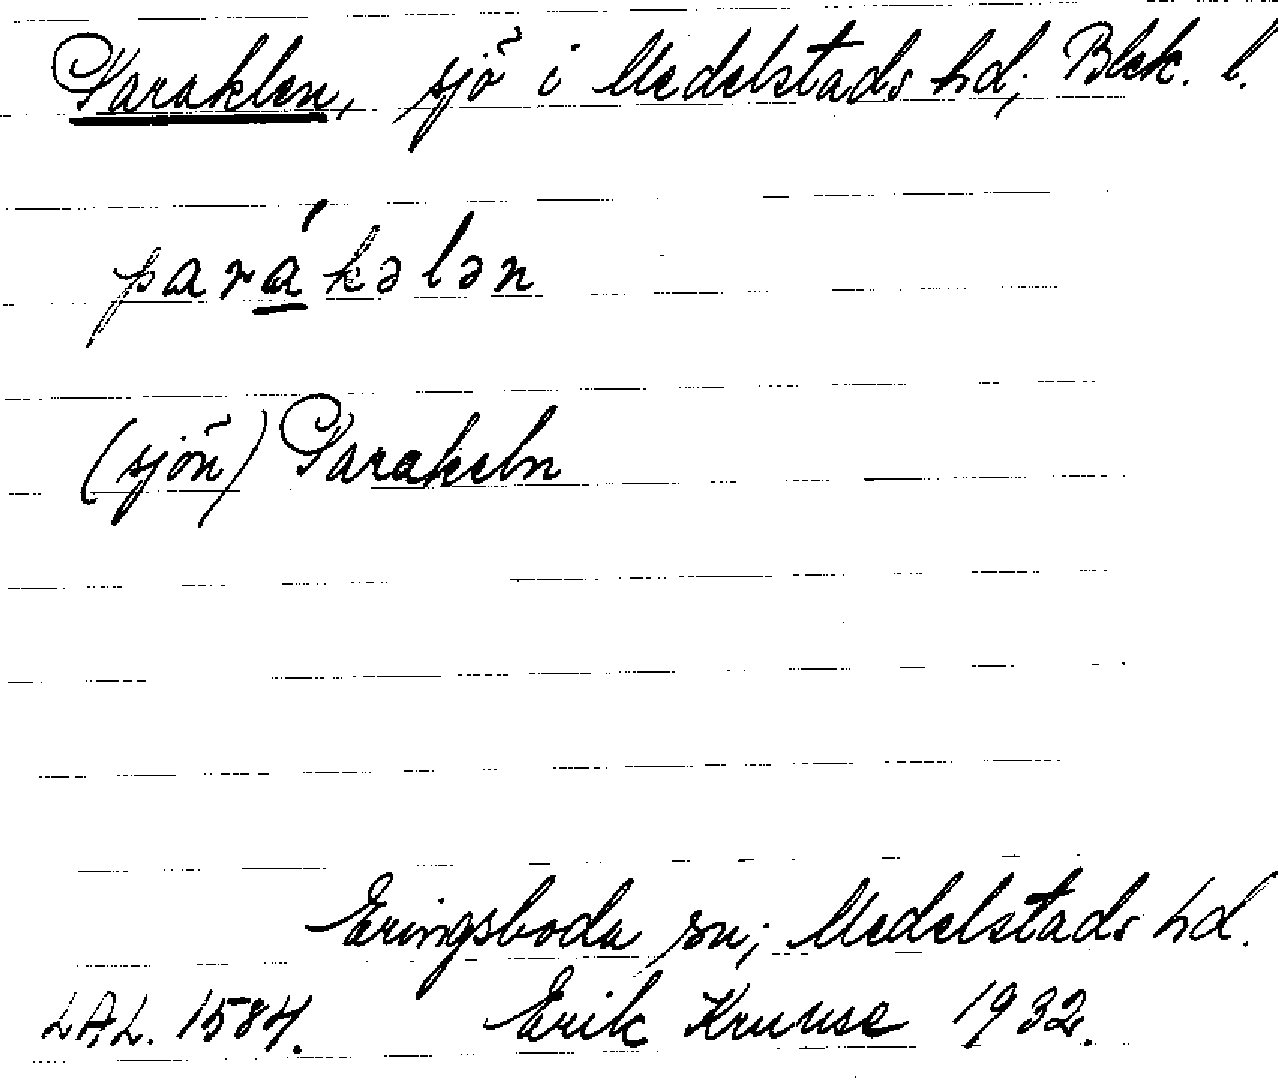 Paraklen, sjö i Medelstads hd, Blek. l.
parákələn
(sjön) Parakeln
Eringsboda sn; Medelstads hd.
LAL. 1584. Erik Kruuse 1932.